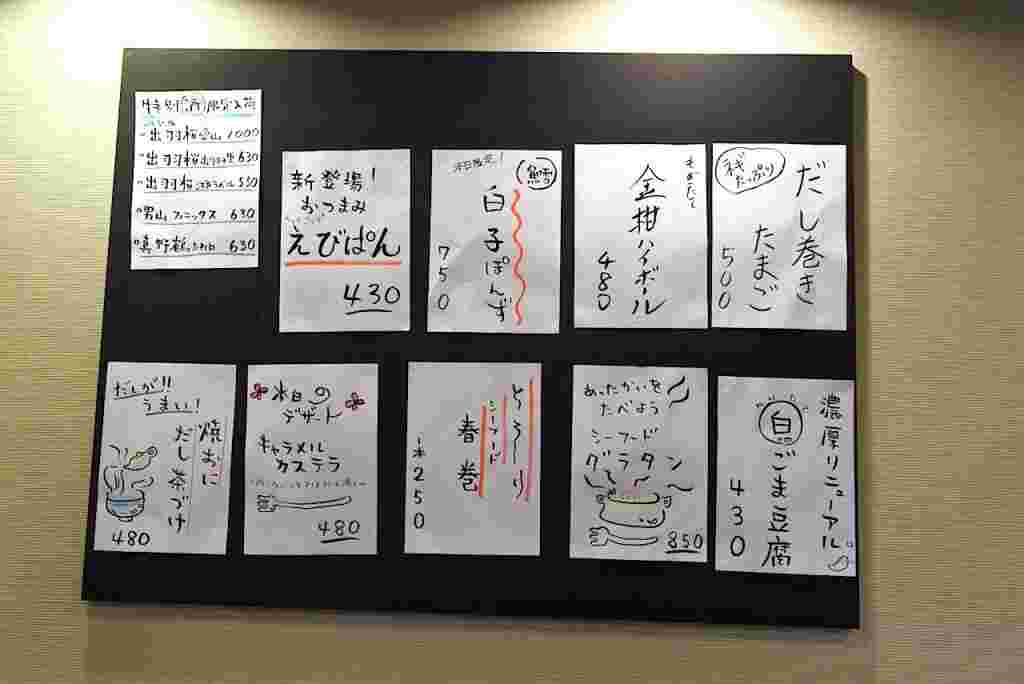 特別酒限定入荷
出羽桜 1000
出羽桜 630
出羽桜 530
男山フェニックス 630
真野鶴 630
新登場!
おつまみ
えびぱん
430
本日限定!
鱈
白子ぽんず
750
金柑ハイボール
480
ネギたっぷり
だし巻き
たまご
500
だしが!!
うまい!
焼おに
だし茶づけ
480
本日の
デザート
キャラメル
カステラ
480
とろ〜り
シーフード
春巻
一本250
あったかいを
たべよう
シーフード
グラタン
850
濃厚リニューアル
白ごま豆腐
430